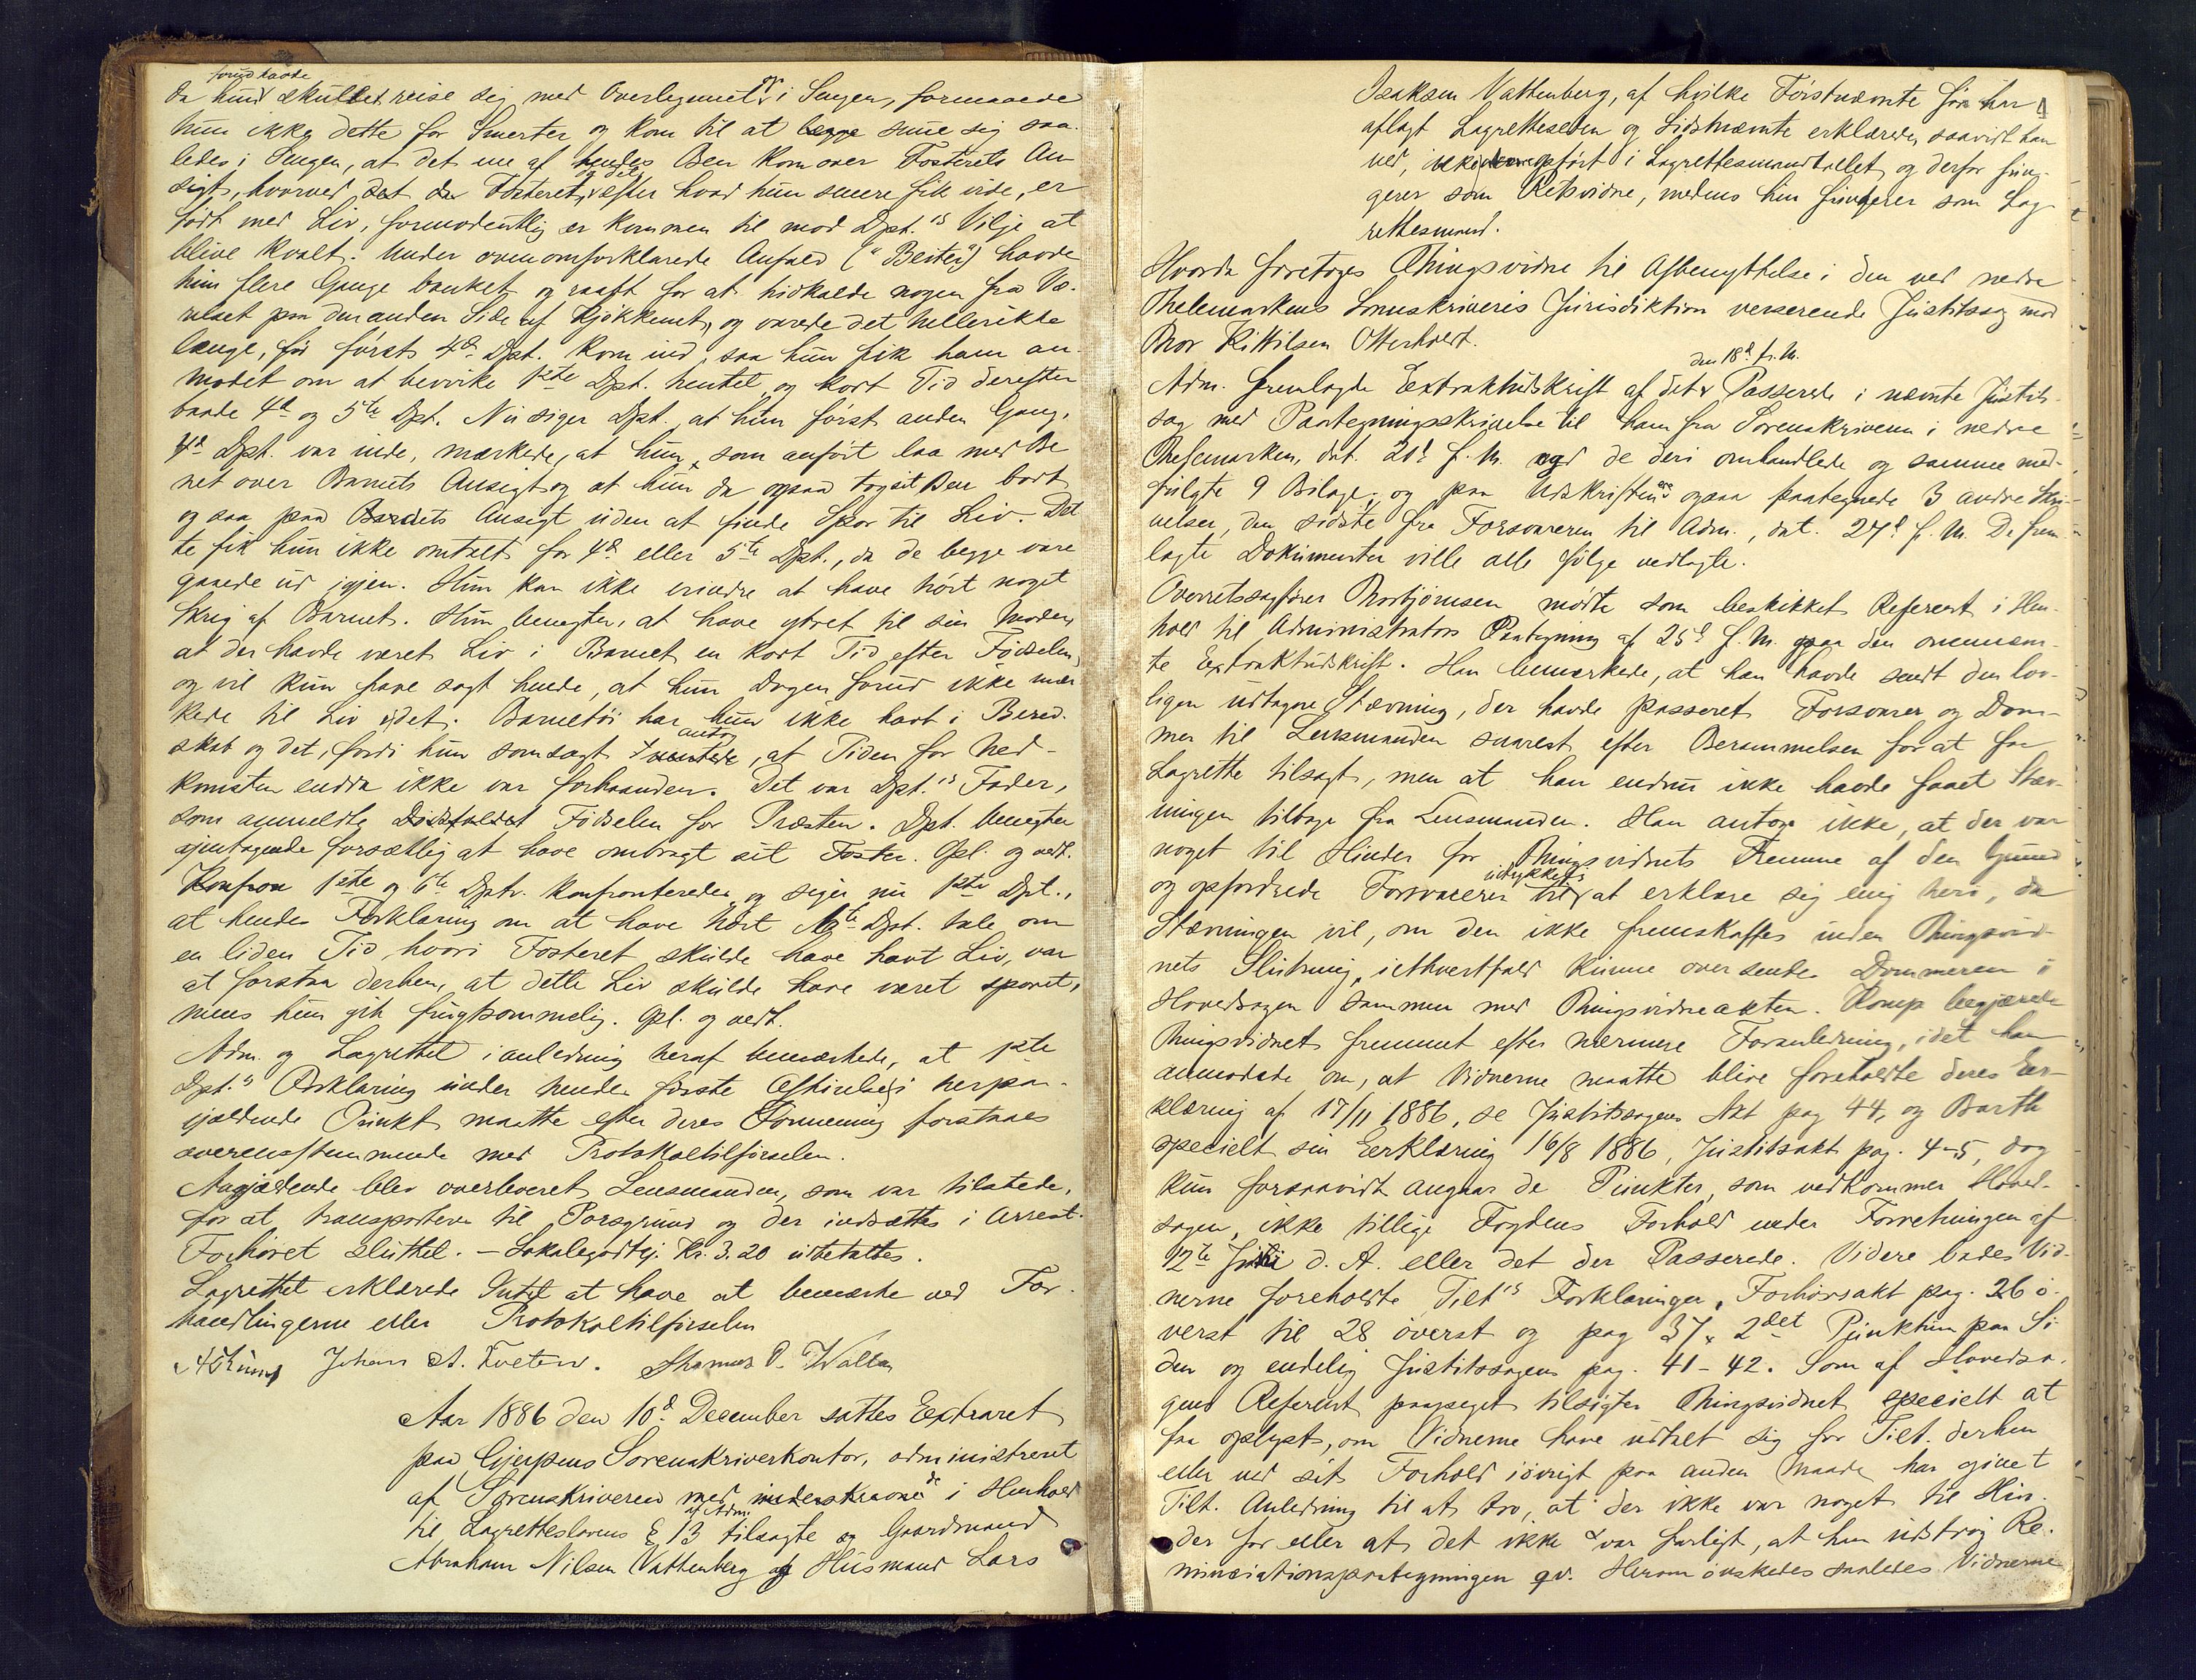 forud havde
da hun skullet reise sig med Overlegemet op i Sengen, formaaede
hun ikke dette for Smerter og kom til at lægge snue sig saa-
ledes i Sengen, at det ene af hendes Ben kom over Fosterets An-
sigt, hvorved det da Fosteret, og det efter hvad hun senere fik vide, er
født med Liv, formodentlig er kommen til mod Dpt.s Vilje at
blive kvalt. Under ovenomforklarede Anfald ("Beiter") havde
hun flere Gange banket og raabt for at tilkalde nogen fra Væ-
relset paa den anden Side af Kjøkkenet, og varede det heller ikke
længe, før først 4de Dpt. kom ind, saa hun fik ham an-
modet om at bevirke 1ste Dpt. hentet, og kort Tid derefter
baade 4de og 5te Dpt. Nu siger Dpt. at hun først anden Gang,
4de Dpt. var inde, mærkede, at hun, som anført laa med Be-
net over Barnets Ansigt og at hun da ogsaa tog sit Ben bort
og saa paa Barnets Ansigt uden at finde Spor til Liv. Det-
te fik hun ikke omtalt for 4de eller 5te Dpt., da de begge vare
gaaede ud igjen. Hun kan ikke erindre at have hørt noget
Skrig af Barnet. Hun benegter, at have ytret til sin Moder,
at der havde været Liv i Barnet en kort Tid efter Fødselen,
og vil kun have sagt hende, at hun Dagen forud ikke mær-
kede til Liv i det. Barnetøi har hun ikke havt i Bered-
skab og det, fordi hun som sagt antog ventede, at Tiden for Ned-
komsten endda ikke var forhaanden. Det var Dpt.s Fader,
som anmeldte Dødsfaldet Fødselen for Præsten. Dpt. benegter
gjentagende forsætlig at have ombragt sit Foster. Opl. og vedt.
Konfron 1ste og 6te Dptr. konfronteredes og siger nu 1ste Dpt.,
at hendes Forklaring om at have hørt 6te Dpt. tale om
en liden Tid, hvori Fosteret skulde have havt Liv, var
at forstaa derhen, at dette Liv skulde have været sporet,
mens hun gik frugtsommelig. Opl. og vedt.
Adm. og Lagrettet i anledning heraf bemærkede, at 1ste
Dpt.s Forklaring under hendes første Afhørelse i herpaa-
gjældende Punkt maatte efter deres Formening forstaaes
overensstemmende med Protokoltilførselen.
Angjældende blev overleveret Lensmanden, som var tilstede,
for at transporteres til Porsgrund og der indsættes i Arrest.
Forhøret sluttet. – Lokalegodtgj. Kr. 3.20 udbetaltes.
Lagrettet erklærede Intet at have at bemærke ved For-
handlingerne eller Protokoltilførselen
Johan A. Tveten. Thomas P. Walla
Aar 1886 den 10de December sattes Extraret
paa Gjerpens Sorenskriverkontor, administreret
af Sorenskriveren med underskrevne de i Henhold
til Lagretteslovens § 13 af Adm. tilsagte og Gaardmand
Abraham Nilsen Vattenberg og Husmand Lars
Isaksen Vattenberg, af hvilke Førstnævnte før har
aflagt Lagretteseden og Sidstnævnte erklærede, saavidt han
ved, ikke opført i Lagrettesmandtallet og derfor fun-
gerer som Retsvidne, medens hin fungerer som Lag-
rettesmand.
Hvorda foretoges Thingsvidne til Afbenyttelse i den ved nedre
Thelemarkens Sorenskriveris Jurisdiktion verserende Justitssag mod
Thor Kittilsen Otterholt.
Adm. fremlagde Extraktudskrift af det den 18de f. M. Passerede i nævnte Justits-
sag med Paategningsskrivelse til ham fra Sorenskriveren i nedre
Thelemarken, dat. 20de f. M. og de deri omhandlede og samme med-
fulgte 9 Bilage, og paa Udskriften ere ogsaa paategnede 3 andre Skri-
velser, den sidste fra Forsvareren til Adm., dat. 27de f. M. De frem-
lagte Dokumenter ville alle følge vedlagte.
Overretssagfører Thorbjørnsen mødte som beskikket Referent i Hen-
hold til Administrators Paategning af 25de f. M. paa den ovennævn-
te Extraktudskrift. Han bemærkede, at han havde sendt den lov-
ligen udtagne Stævning, der havde passeret Forsvarer og Dom-
mer til Lensmanden snarest efter Berammelsen for at faa
Lagrette tilsagt, men at han endnu ikke havde faaet Stæv-
ningen tilbage fra Lensmanden. Han antog ikke, at der var
noget til Hinder for Thingsvidnets Fremme af den Grund
og opfordrede Forsvareren udtrykkelig til at erklære sig enig heri, da
Stævningen vil, om den ikke fremskaffes inden Thingsvid-
nets Slutning, i ethvertfald kunne oversendes Dommeren i
Hovedsagen sammen med Thingsvidneakten. Komp. begjærede
Thingsvidnet fremmet efter nærmere Foranledning, idet han
anmodede om, at Vidnerne maatte blive foreholdte deres Er-
klæring af 17/11 1886, se Justitssagens Akt pag 44, og Barth
specielt sin Erklæring 16/8 1886, Justitsakt pag. 4-5, dog
kun forsaavidt angaar de Punkter, som vedkommer Hoved-
sagen, ikke tillige Fogdens Forhold under Forretningen af
12te Juli d. A. eller det der Passerede. Videre bades Vid-
nerne foreholdte Tilts Forklaringer, Forhørsakt pag. 26 ø-
verst til 28 øverst og pag 37, 2det Punktum paa Si-
den og endelig Justitssagens pag. 41 – 42. Som af Hovedsa-
gens Referent paapeget tilsigter Thingsvidnet specielt at
faa oplyst, om Vidnerne have udtalt sig for Tilt. derhen
eller ved sit Forhold iøvrigt paa anden Maade har givet
Tilt. Anledning til at tro, at der ikke var noget til Hin-
der for eller at det ikke var farligt, at han udstrøg Re-
nunciationspaategningen qv. Herom ønskedes saaledes Vidnerne